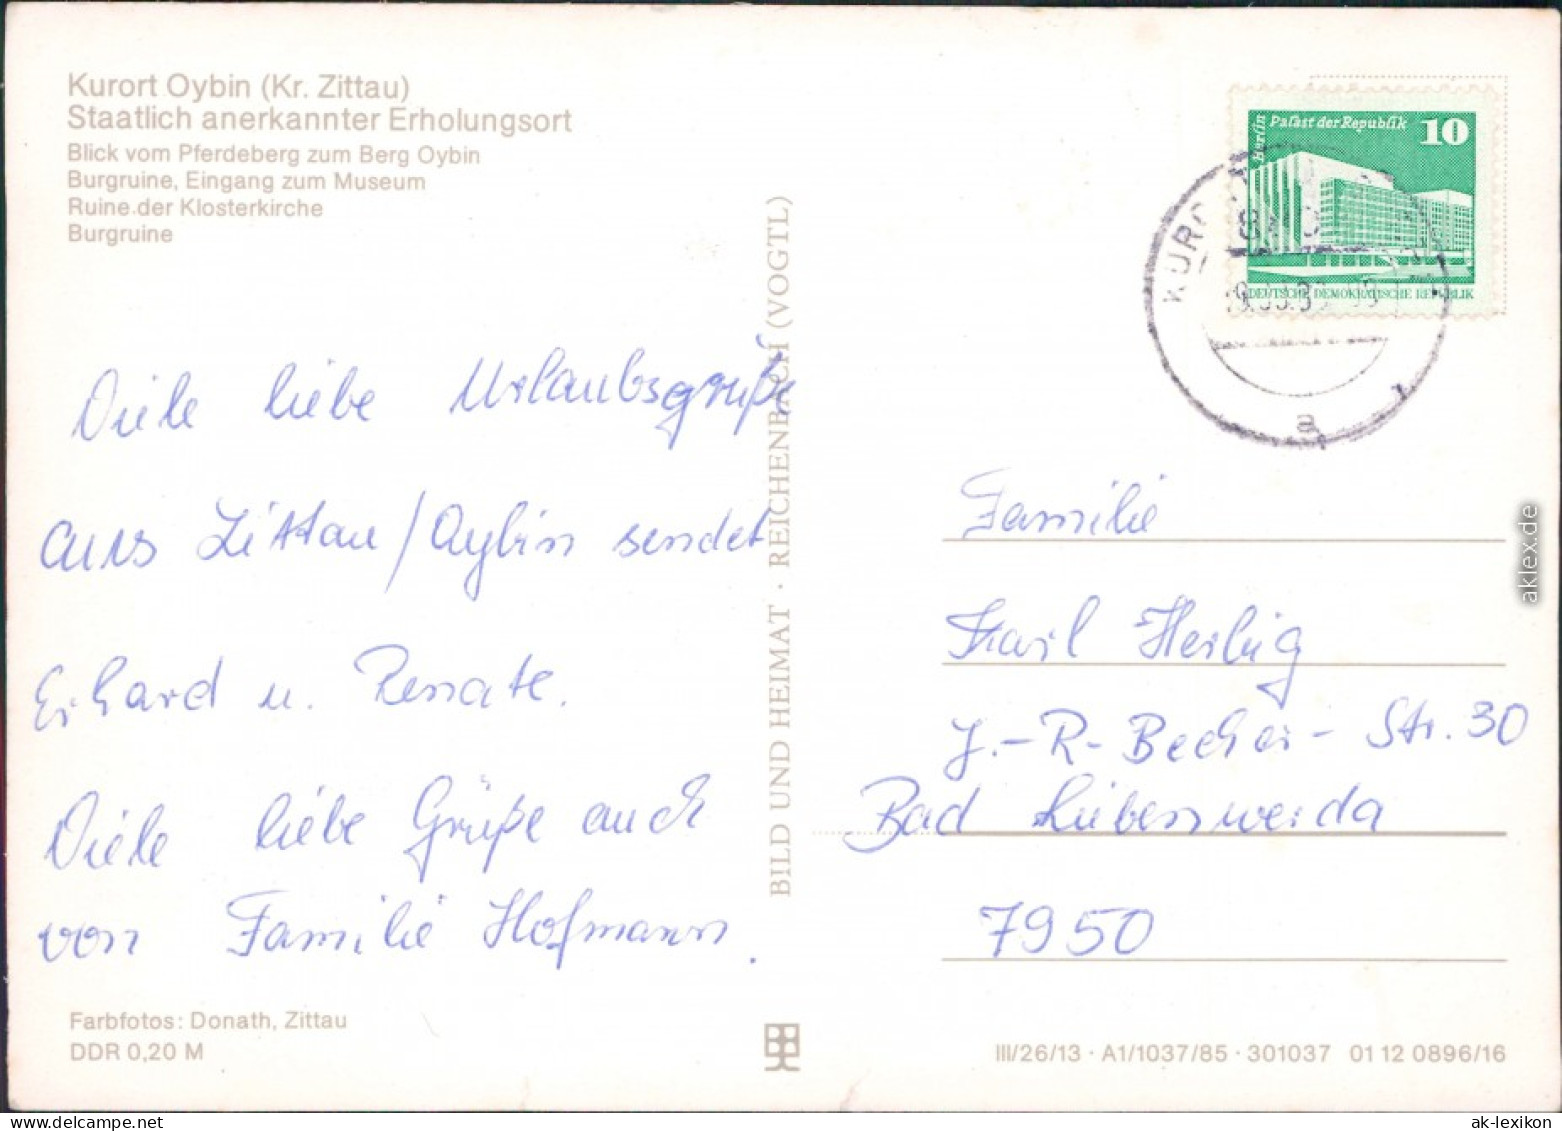 Kurort Oybin (Kr. Zittau)
Staatlich anerkannter Erholungsort
Blick vom Pferdeberg zum Berg Oybin
Burgruine, Eingang zum Museum
Ruine der Klosterkirche
Burgruine
Berlin
Palast der Republik
10
DEUTSCHE DEMOKRATISCHE REPUBLIK
a
Viele liebe Urlaubsgrüße
aus Zittau/Oybin sendet
Erhard u. Renate.
Viele liebe Grüße auch
von Familie Hofmann.
BILD UND HEIMAT · REICHENBACH (VOGTL)
Familie
Karl Helbig
J.-R-Becher-Str. 30
Bad Liebenwerda
7950
Farbfotos: Donath, Zittau
DDR 0,20 M
III/26/13 · A1/1037/85 · 301037 01 12 0896/16
aklex.de
ak-lexikon